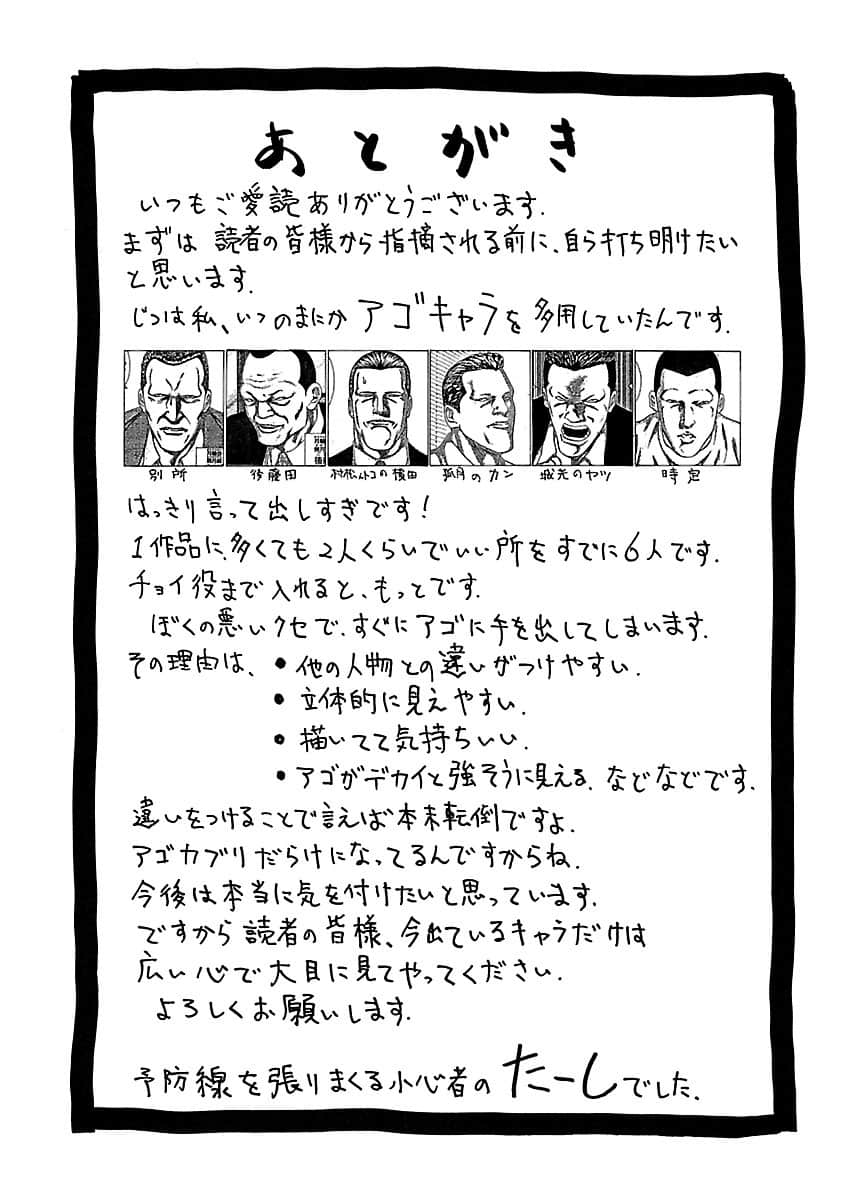 あとがき
いつもご愛読ありがとうございます.
まずは 読者の皆様から指摘される前に、自ら打ち明けたい
と思います.
じつは私、いつのまにか アゴキャラを 多用していたんです.
別所 後藤田 村松ムトコの横田 孤月のカン 城先のヤツ 時定
はっきり言って出しすぎです!
1作品に、多くても2人くらいでいい所をすでに6人です.
チョイ役まで入れると、もっとです.
ぼくの悪いクセで、すぐにアゴに手を出してしまいます.
その理由は、 ● 他の人物との違いがつけやすい.
● 立体的に見えやすい.
● 描いてて気持ちいい.
● アゴがデカイと強そうに見える. などなどです.
違いをつけることで言えば本末転倒ですよ.
アゴカブリだらけになってるんですからね.
今後は本当に気を付けたいと思っています.
ですから 読者の皆様、今出ているキャラだけは
広い心で大目に見てやってください.
よろしくお願いします.
予防線を張りまくる小心者の たーしでした.